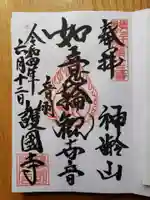 奉拝
神齢山
如意輪観世音
音羽
護國寺
令和四年
六月十二日